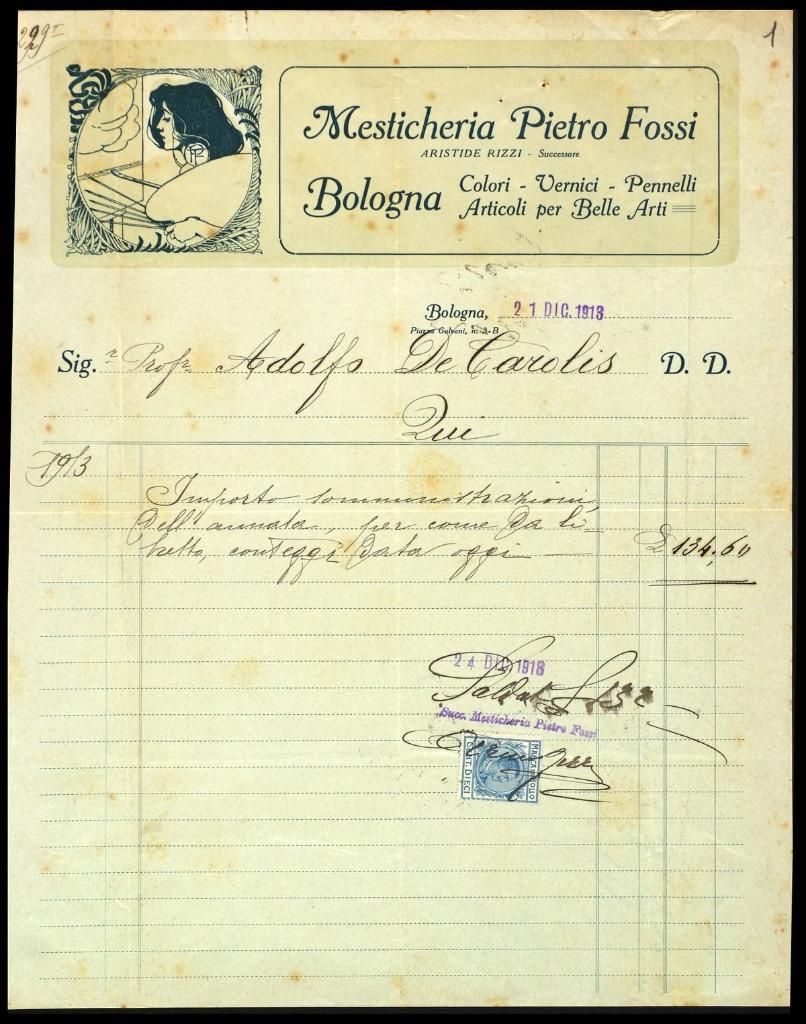 1
Mesticheria Pietro Fossi
ARISTIDE RIZZI - Successore
Bologna
Colori - Vernici - Pennelli
Articoli per Belle Arti
Bologna, 21 DIC. 1913
Piazza Galvani,
Sig.r Profr. Adolfo De Carolis D. D.
Qui
1913
Importo somministrazioni
dell'annata, per come da li-
bretto, conteggi data oggi £ 134,60
24 DIC 1913
Saldato
Succ. Mesticheria Pietro Fossi
CENT. DIECI
MARCA DA BOLLO